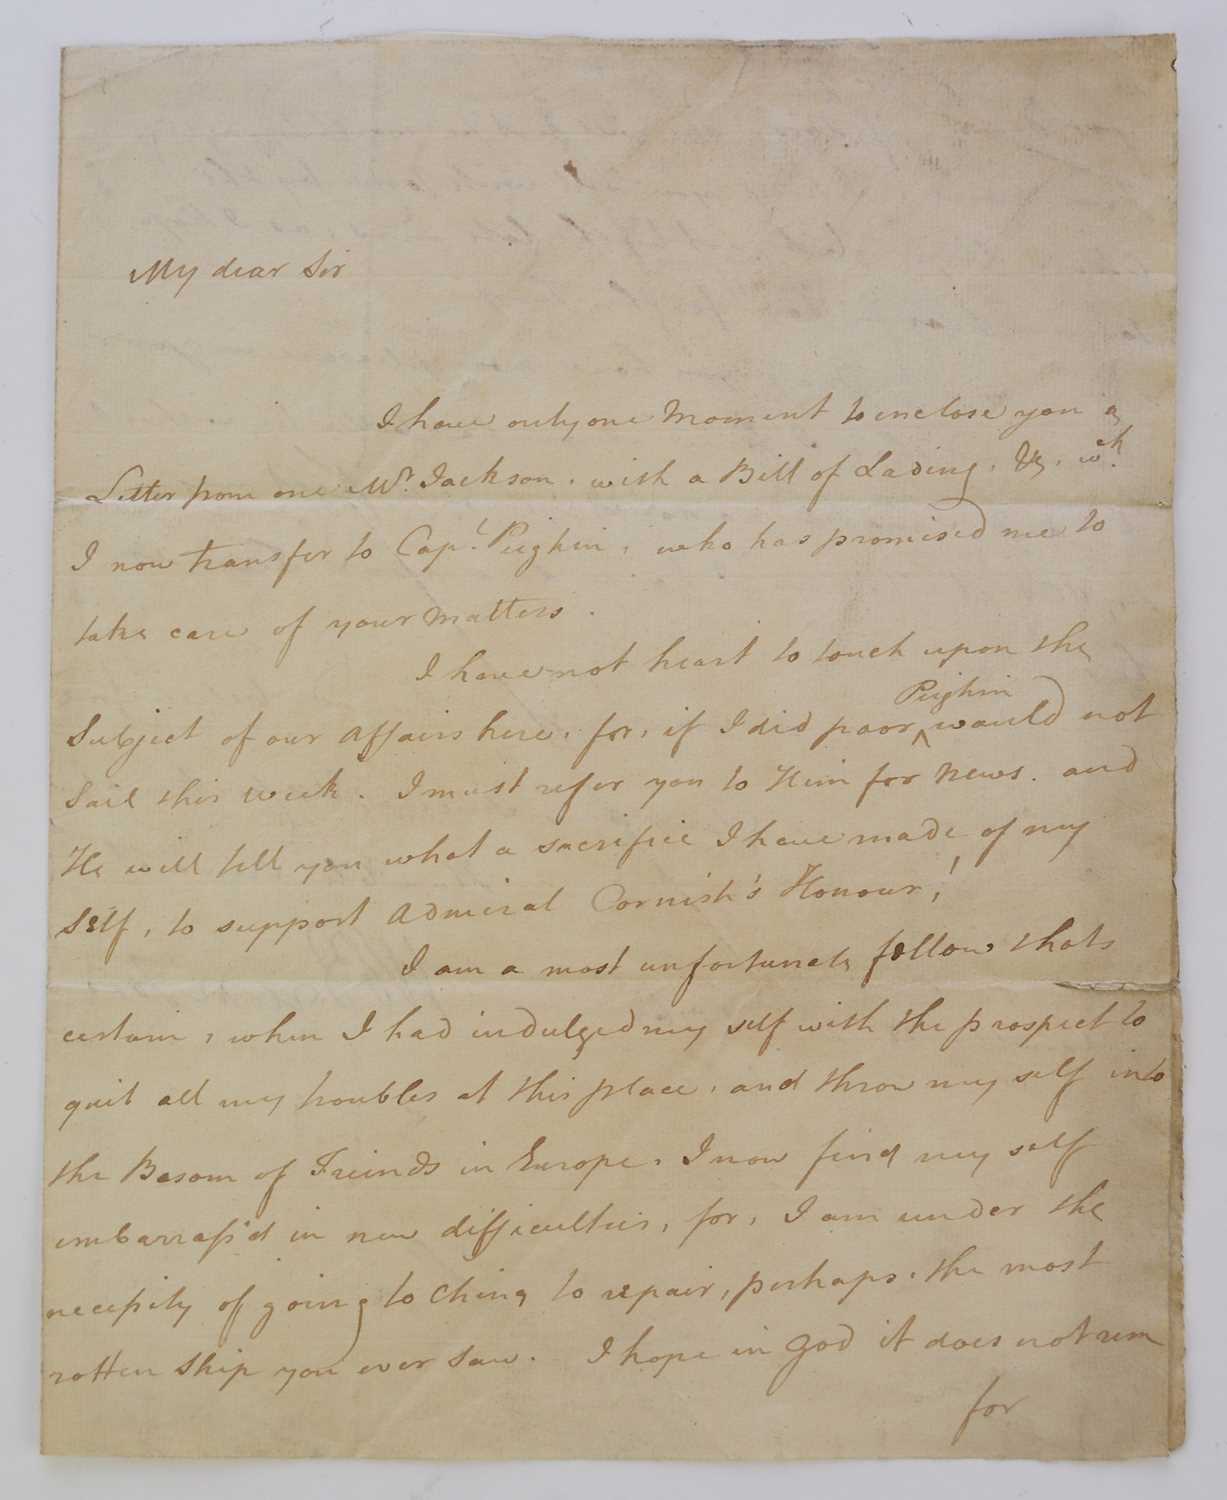 My dear Sir
I have only one Moment to inclose you a
Letter from one Mr. Jackson, with a Bill of Lading, &c, wch.
I now transfer to Capt. Pighin, who has promised me to
take care of your matters.
I have not heart to touch upon the
Subject of our affairs here, for, if I did poor ^Pighin would not
Sail this week. I must refer you to Him for News. and
He will tell you what a sacrifice I have made of my
Self, to support Admiral Cornish's Honour,!
I am a most unfortunate fellow thats
certain, when I had indulged my self with the prospect to
quit all my troubles at this place, and throw my self into
the Bosom of Freinds in Europe, I now find my self
embarrass'd in new difficulties, for, I am under the
necessity of going to China to repair, perhaps, the most
rotten Ship you ever saw. I hope in God it does not rem
for